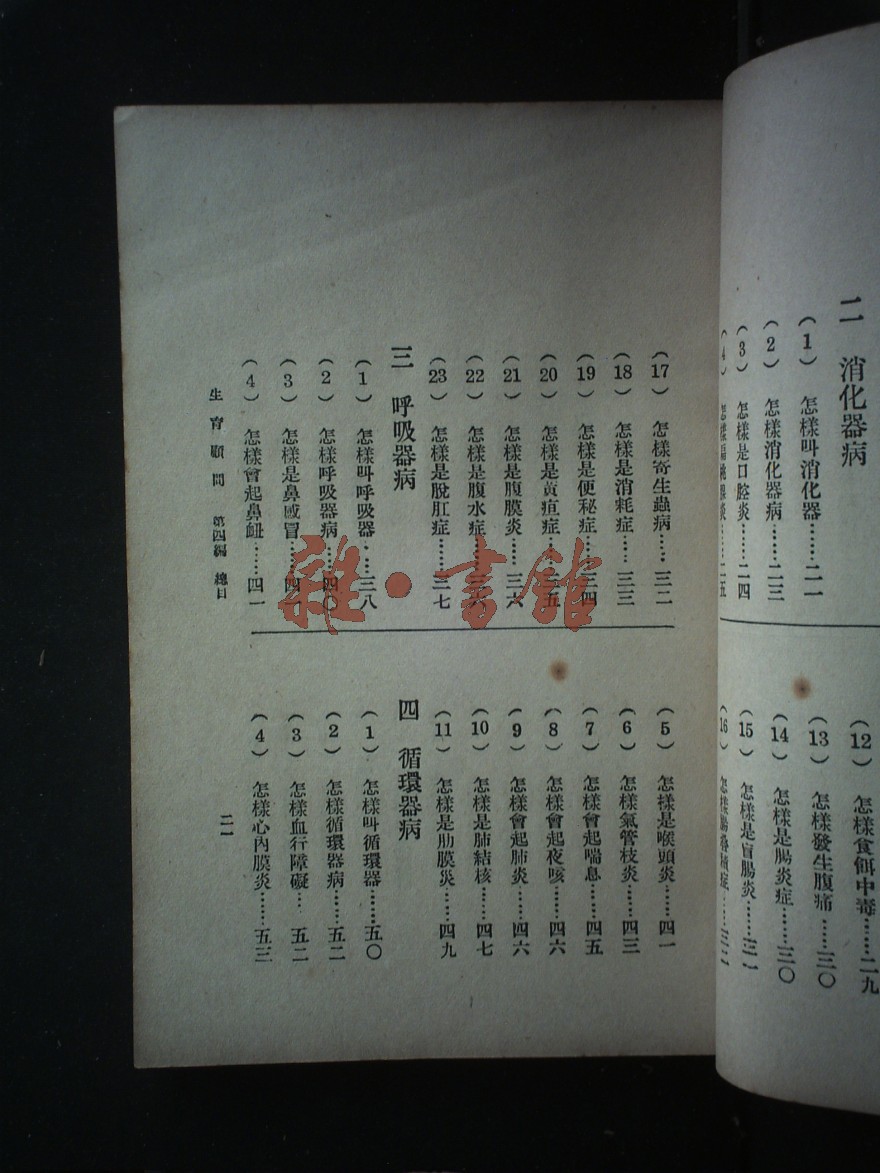 二　消化器病
(1)　怎樣叫消化器……二一
(2)　怎樣消化器病……二三
(3)　怎樣是口腔炎……二四
(4)　怎樣扁桃腺炎……二五
(12)　怎樣食餌中毒……二九
(13)　怎樣發生腹痛……三〇
(14)　怎樣是腸炎症……三〇
(15)　怎樣是盲腸炎……三一
(16)　怎樣腸
(17)　怎樣寄生蟲病……三二
(18)　怎樣是消耗症……三三
(19)　怎樣是便秘症……三四
(20)　怎樣是黃疸症……三五
(21)　怎樣是腹膜炎……三六
(22)　怎樣是腹水症……三六
(23)　怎樣是脫肛症……三七
三　呼吸器病
(1)　怎樣叫呼吸器……三八
(2)　怎樣呼吸器病……四〇
(3)　怎樣是鼻感冒……四
(4)　怎樣會起鼻衄……四一
(5)　怎樣是喉頭炎……四一
(6)　怎樣氣管枝炎……四三
(7)　怎樣會起喘息……四五
(8)　怎樣會起夜咳……四六
(9)　怎樣會起肺炎……四六
(10)　怎樣是肺結核……四七
(11)　怎樣是肋膜炎……四九
四　循環器病
(1)　怎樣叫循環器……五〇
(2)　怎樣循環器病……五二
(3)　怎樣血行障礙…五二
(4)　怎樣心內膜炎……五三
生育顧問　第四編　總目
二一
雜·書館